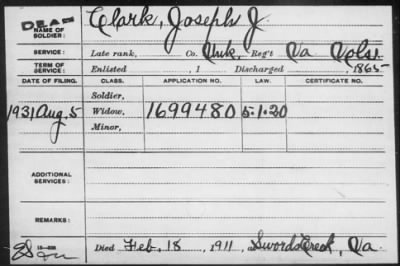 DEAD
NAME OF SOLDIER: Clark, Joseph J.
SERVICE: Late rank, Co. Unk, Reg't Va Vols.
TERM OF SERVICE: Enlisted , 1 Discharged , 1865
DATE OF FILING. CLASS. APPLICATION NO. LAW. CERTIFICATE NO.
Soldier,
1931 Aug. 5 Widow, 1699480 5-1-20
Minor,
ADDITIONAL SERVICES:
REMARKS:
Died Feb. 18, 1911, Swords Creek, Va.